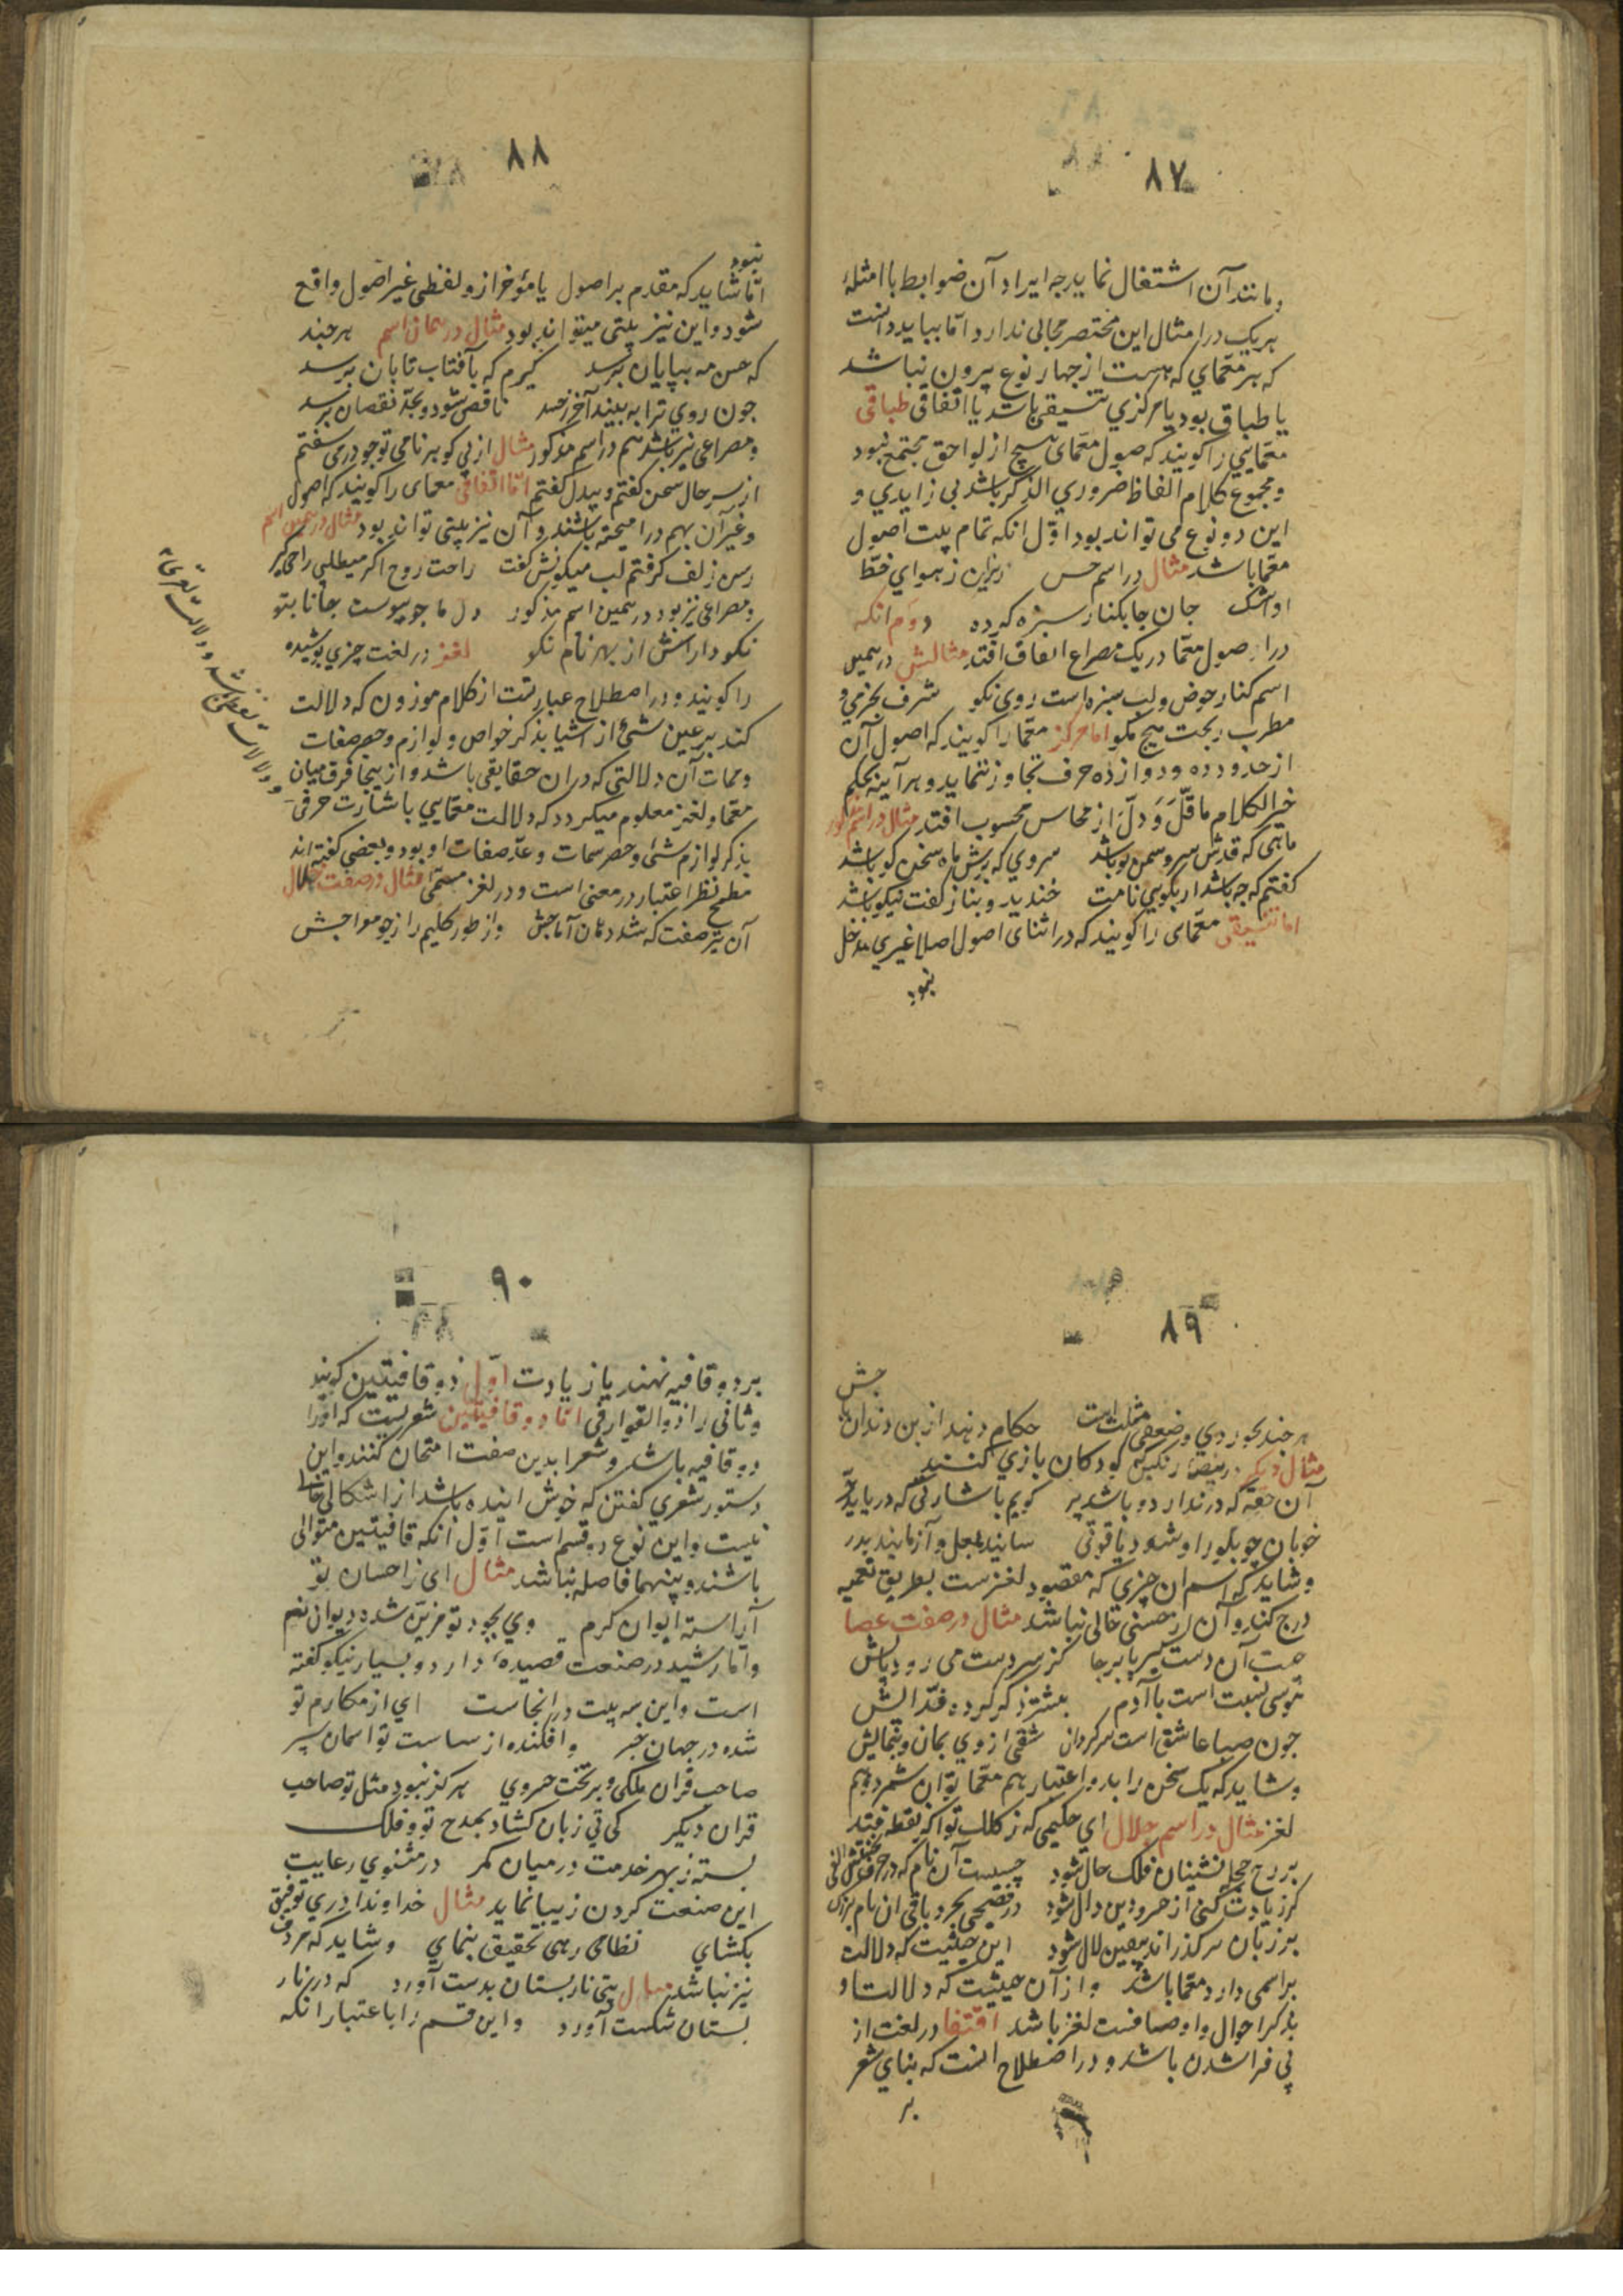 ۸۷
و مانند آن اشتغال نماید چه ایراد آن ضوابط با امثلهٔ
هر یک در امثال این مختصر مجالی ندارد اما بباید دانست
که هر معمای که هست از چهار نوع بیرون نباشد
یا طباقی بود یا مرکزی یا تنسیقی باشد یا اتفاقی طباقی
معمایی را گویند که اصول معمای هیچ از لواحق مجتمع نبود
و مجموع کلام الفاظ ضروری الذکر باشد بی زایدی و
این دو نوع می تواند بود اول انکه تمام بیت اصول
معما باشد مثال در اسم حسن ریزان ز هوای خط
او اشک جان جا بکنار سبزه کرده دوم انکه
در اصول معما در یک مصراع اتفاق افتد مثالش در همین
اسم کنار حوض و لب سبزه است روی نکو شرف بخرمی و
مطرب بجت هیچ مگو اما مرکز معما را گویند که اصول آن
از حدود ده و دوازده حرف تجاوز ننماید و هر آینه بحکم
خیر الکلام ما قلّ وَ دلّ از محاسن محسوب افتد مثال در اسم مذکور
ماهی که قدش سرو سمن بو باشد سروی که برش ماه سخن گو باشد
گفتم که چه باشد ار بگویی نامت خندید و بناز گفت نیکو باشد
اما تنسیقی معمای را گویند که در اثنای اصول اصلا غیری مدخل
نبود
۸۸
نبود
اما شاید که مقدم بر اصول یا مؤخر ازو لفظی غیر اصول واقع
شود و این نیز بیتی میتواند بود مثال در همان اسم هر چند
که حسن مه بپایان برسد گیرم که بآفتاب تابان برسد
چون روی ترا به بیند آخر ناقص شود و بحد نقصان برسد
و مصراعی نیز باشد هم در اسم مذکور مثال از پی گوهر نامی تو چو در می سفتم
از سر حال سخن گفتم و بیدل گفتم اما اتفاقی معمای را گویند که اصول
و غیر آن بهم در امیخته باشند و آن نیز بیتی تواند بود مثال در همین اسم
رسن زلف گرفتم لب میگونش گفت راحت روح اگر میطلبی راح بگیر
و مصراعی نیز بود در همین اسم مذکور دل ما چو پیوست بجانا بتو
نکو دارانش از بهر نام نکو لغز در لغت چیزی پوشیده
را گویند و در اصطلاح عبارتست از کلام موزون که دلالت
کند بر عین شئ از اشیا بذکر خواص و لوازم و حصر صفات
و سمات آن دلالتی که در ان حقایقی باشد و از ینجا فرق میان
معما و لغز معلوم میگردد که دلالت معمایی باشارت حرفی
بذکر لوازم شئ و حصر سمات و عدّ صفات او بود و بعضی گفته اند
مطمح نظر اعتبار در معنی است و در لغز مسمی مثال در صفت خلال
آن تیر صفت که شد دهان آماجش و از طور کلیم را ز چو معراجش
۸۹
جش
هر چند بخوردی و ضعفی مثلست حکام دهند از بن دندان
مثال دیگر در بیضهٔ رنگین کودکان بازی کنند
آن حقه که در ندارد و باشد پر گویم باشارتی که دریابد
خوبان چو بلور او شود یاقوتی سایند بلعل و آزمایند بدر
و شاید که اسم ان چیزی که مقصود لغز ست بطریق تعمیه
درج کند و آن از حسنی خالی نباشد مثال در صفت عصا
چیست آن دست گیر پا برجا کز سر دست می رود پاش
قوسی نسبت است با آدم بیشتر ز که کرده قد الش
چون صبا عاشق است سرگردان شقی از وی بمان و بنمایش
و شاید که یک سخن را بدو اعتبار هم معما توان شمرد و هم
لغز مثال در اسم جلال ای حکیمی که ز کلک تو اگر نقطه فتد
بر رخ حجله نشینان فلک خال شود چیست آن نام که در حرف نخستش الفی
گر زیادت کنی از حرف دوین دال شود در فصیحی بحروف باقی ان نام
بر زبان سر گذراند بیقین لال شود این حیثیت که دلالت
بر اسمی دارد معما باشد و از آن حیثیت که دلالت او
بذکر احوال و اوصافست لغز باشد اقتفا در لغت از
پی فرا شدن باشد و در اصطلاح انست که بنای شعر
بر
۹۰
بر دو قافیه نهند یا زیادت اول ذو قافیتین گویند
و ثانی را ذو القوافی اما ذو قافیتین شعریست که او را
دو قافیه باشد و شعرا بدین صفت امتحان کنند و این
دستور شعری گفتن که خوش اینده باشد از اشکالی خالی
نیست و این نوع دو قسم است اول انکه قافیتین متوالی
باشند و بینهما فاصله نباشد مثال ای ز احسان تو
آراسته ایوان کرم وی بجود تو مزین شده دیوان نعم
و اما رشید در صنعت قصیدهٔ دارد و بسیار نیکو گفته
است و این سه بیت در انجاست ای از مکارم تو
شده در جهان خبر و افکنده از سیاست تو اسمان سپر
صاحب قران ملکی و بر تخت خسروی هرگز نبود مثل تو صاحب
قران دیگر کی نی زبان گشاد بمدح تو و فلک
بسته ز بهر خدمت در میان کمر در مثنوی رعایت
این صنعت کردن زیبا نماید مثال خداوندا دری توفیق
بکشای نظامی رهی تحقیق بنمای و شاید که مردف
نیز نباشد مثال بتی نار بستان بدست آورد که در نار
بستان شکست آورد و این قسم را باعتبار انکه